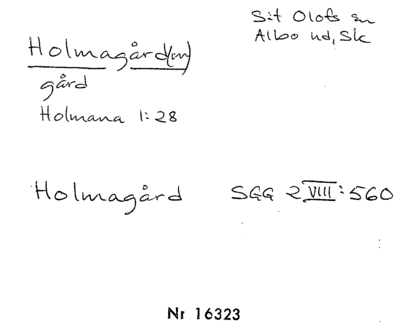 Holmagård(en)
S:t Olofs sn
Albo hd, Sk
gård
Holmana 1:28
Holmagård SGG 2 VIII:560
Nr 16323